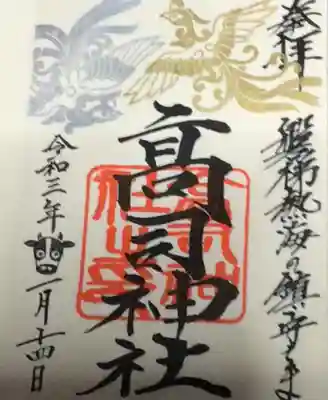 奉拝
磐梯熱海の鎮守さま
高司神社
令和三年 一月十四日